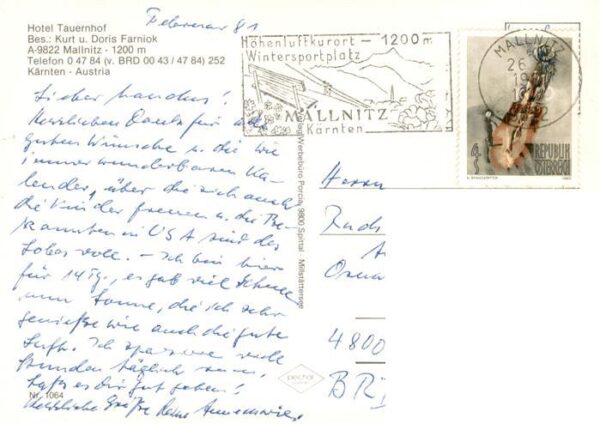 Februar 81
Hotel Tauernhof
Bes.: Kurt u. Doris Farniok
A-9822 Mallnitz - 1200 m
Telefon 0 47 84 (v. BRD 00 43 / 47 84) 252
Kärnten - Austria
Höhenluftkurort — 1200 m
Wintersportplatz
MALLNITZ
Kärnten
MALLNITZ
26
4
REPUBLIK
ÖSTERREICH
Lieber
Herzlichen Dank für die
guten Wünsche u. die wie
immer wunderbaren Ka-
lender, über die sich auch
die Kinder freuen u. die Be-
kannten in USA sind des
Lobes voll. – Ich bin hier
für 14 Tg., es gab viel Schnee
und Sonne, die ich sehr
genieße wie auch die gute
Luft. Ich spaziere viele
Stunden täglich
Laß es dir gut gehen!
Herzliche Grüße Deine Annemarie
Nr. 1064
Werbebüro Porcia, 9800 Spittal Millstättersee
Herrn
4800